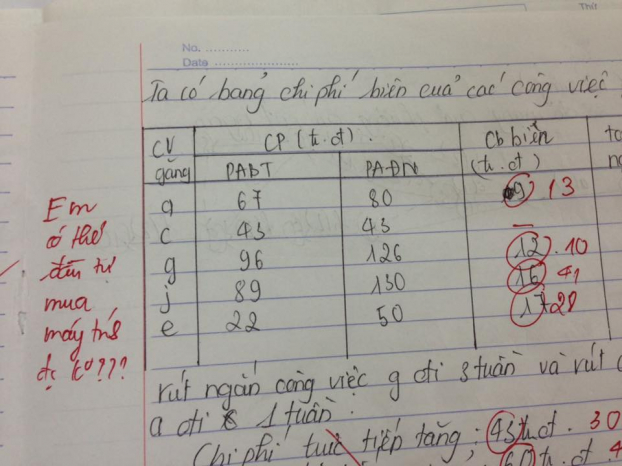 Thứ
No. ............
Date ........................
Ta có bảng chi phí biên của các công việc
CV găng
CP (tr.đ).
Cp biên (tr.đ)
PABT
PAĐN
a 67 80 13
c 43 43 –
g 96 126 12 . 10
j 89 130 16 41
e 22 50 17 28
rút ngắn công việc g đi 3 tuần và rút
a đi 1 tuần.
Chi phí trực tiếp tăng: 43 tr.đ. 30
tr.đ.
Em
có thể
mua
máy
???